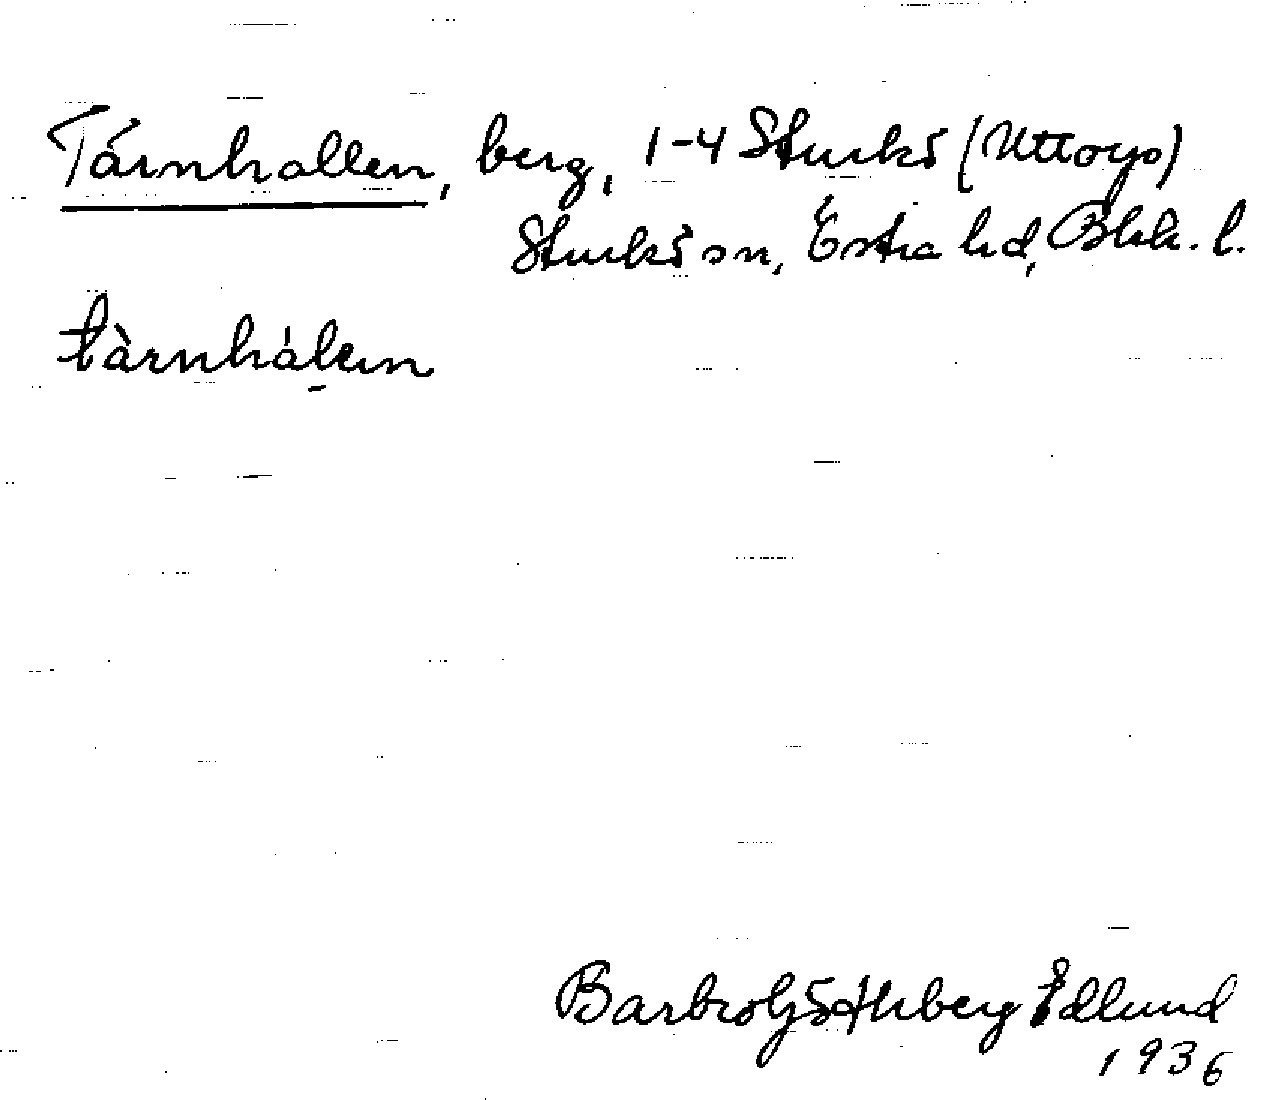 Tärnhallen, berg, 1-4 Sturkö (Uttorp)
Sturkö sn, Östra hd, Blek. l.
tàrnhálen
Barbro Edlund
1936